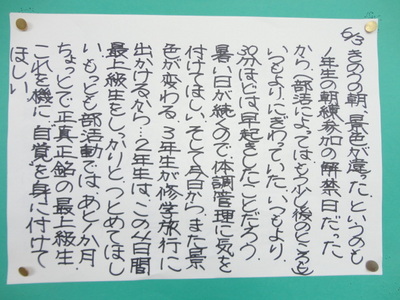 5/3 きのうの朝、景色が違った。というのも
1年生の朝練参加の解禁日だった
から(部活によってはもう少し後のところも)
いつもより、にぎわっていた。いつもより、
30分ほどは、早起きしたことだろう。
暑い日が続くので、体調管理に気を
付けてほしい。そして今日から、また景
色が変わる。3年生が修学旅行に
出かけるから…。2年生は、この4日間
最上級生をしっかりと、つとめてほし
い。もっとも部活動では、あと1か月
ちょっとで正真正銘の最上級生。
これを機に、自覚を身に付けて
ほしい